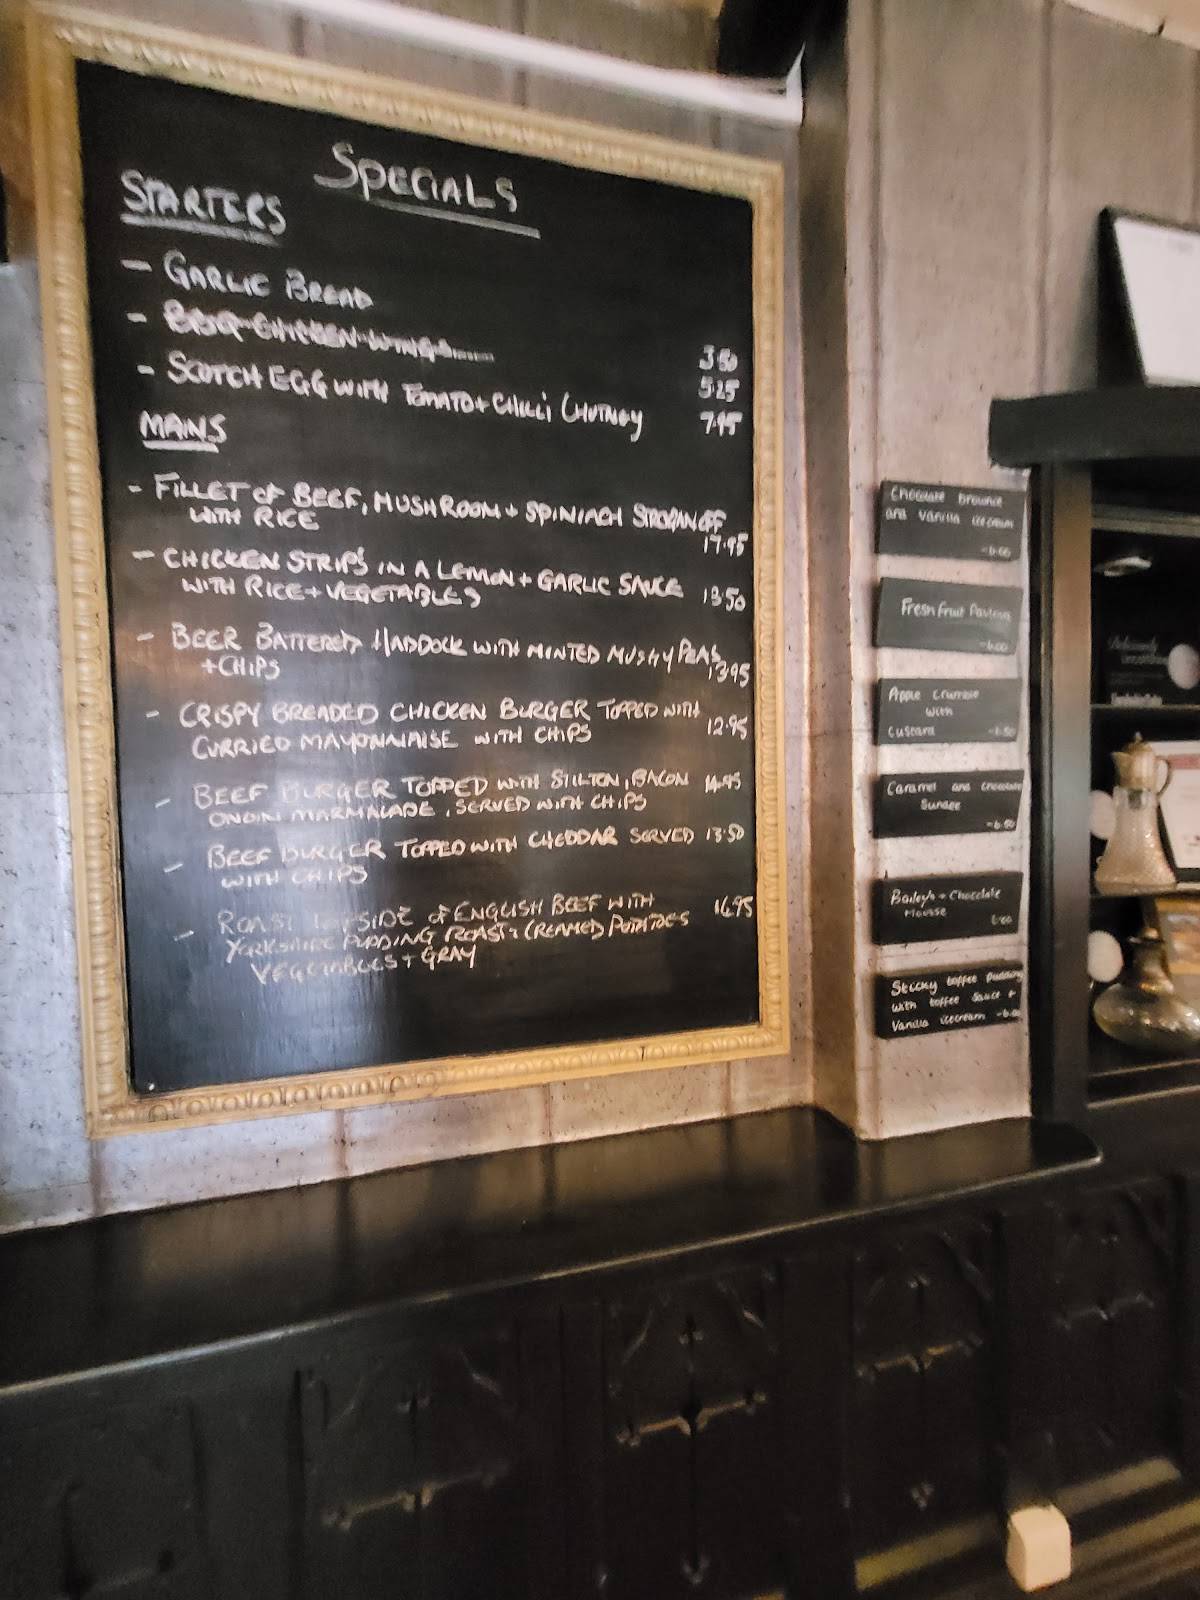 SPECIALS
STARTERS
- GARLIC BREAD 3.50
- BBQ CHICKEN WINGS 5.25
- SCOTCH EGG WITH TOMATO + CHILLI CHUTNEY 7.95
MAINS
- FILLET OF BEEF, MUSHROOM + SPINIACH STROGANOFF
WITH RICE 17.95
- CHICKEN STRIPS IN A LEMON + GARLIC SAUCE 13.50
WITH RICE + VEGETABLES
- BEER BATTERED HADDOCK WITH MINTED MUSHY PEAS
+ CHIPS 13.95
- CRISPY BREADED CHICKEN BURGER TOPPED WITH 12.95
CURRIED MAYONNAISE WITH CHIPS
- BEEF BURGER TOPPED WITH STILTON, BACON 14.45
ONOIN MARMALADE, SERVED WITH CHIPS
- BEEF BURGER TOPPED WITH CHEDDAR SERVED 13.50
WITH CHIPS
- ROAST TOPSIDE OF ENGLISH BEEF WITH 16.95
YORKSHIRE PUDDING ROAST + CREAMED POTATOES
VEGETABLES + GRAY
Chocolate brownie
and vanilla icecream
-6.00
Fresh Fruit Pavlova
-6.00
Apple Crumble
with
Custard -6.50
Caramel and chocolate
Sundae
-6.50
Bailey's + Chocolate
Mousse
6.00
Sticky toffee pudding
with toffee sauce +
Vanilla icecream -6.00